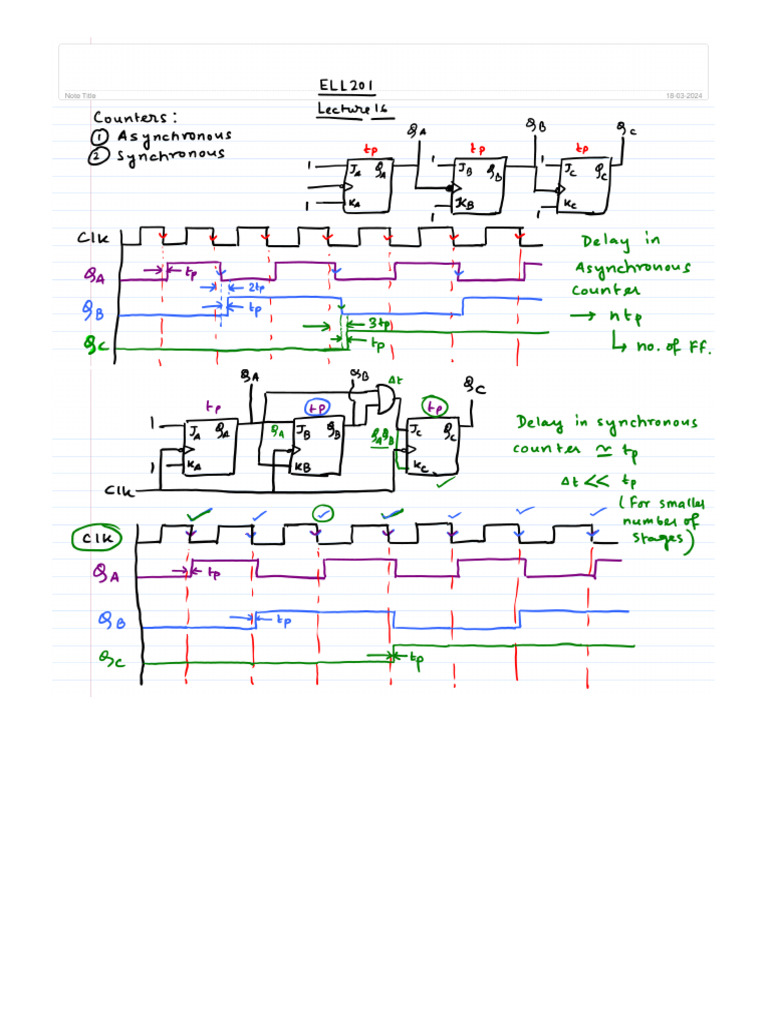 ELL201
Note Title
18-03-2024
Lecture 16
Counters:
① Asynchronous
② Synchronous
QA
QB
QC
tp
tp
tp
1
JA QA
KA
1
1
JB QB
KB
1
1
JC QC
KC
1
Clk
QA
tp
2tp
QB
tp
3tp
QC
tp
Delay in
Asynchronous
Counter
→ ntp
↳ no. of FF.
QA
QB
Δt
QC
tp
tp
tp
1
JA QA
KA
1
QA
JB QB
KB
QAQB
JC QC
KC
Clk
Delay in synchronous
counter ≃ tp
Δt << tp
(For smaller
number of
stages)
Clk
QA
tp
QB
tp
QC
tp